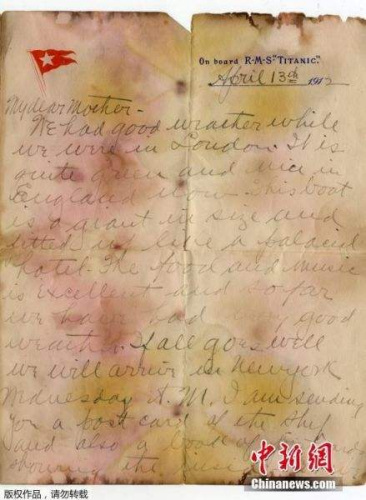 On board R·M·S "TITANIC".
April 13th 1912
My dear Mother-
We had good weather while
we were in London. It is
quite green and nice in
England now. This boat
is a giant in size and
fitted up like a palacial
hotel. The food and music
is excellent and so far
we have had very good
weather. If all goes well
we will arrive in New York
Wednesday A.M. I am sending
you a post card of the ship
and also a book of
showing the inside
中新网
CHINANEWS.COM
版权作品,请勿转载